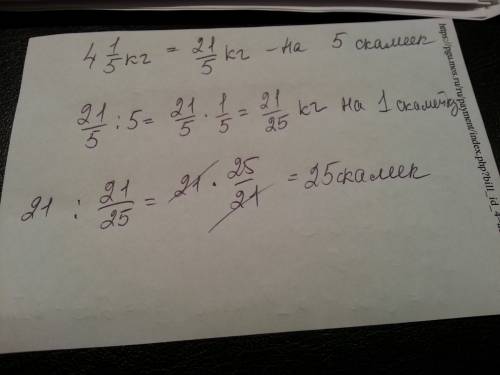 4 1/5 кг = 21/5 кг - на 5 скамеек
21/5 : 5 = 21/5 · 1/5 = 21/25 кг на 1 скамейку
21 : 21/25 = 21 · 25/21 = 25 скамеек